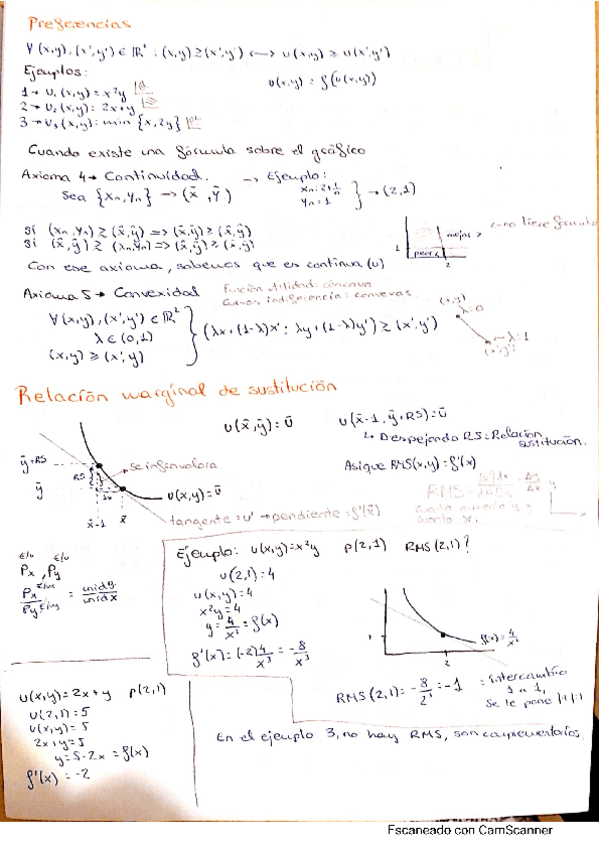 Preferencias
∀(x,y),(x',y') ∈ ℝ² : (x,y) ≥ (x',y') ⟷ u(x,y) ≥ u(x',y')
Ejemplos:
u(x,y) = f(u(x,y))
1 → U₁(x,y) = x²y
2 → U₂(x,y): 2x+y
3 → U₃(x,y): min {x,2y}
Cuando existe una fórmula sobre el gráfico
Axioma 4 → Continuidad.
→ Ejemplo:
Sea {xₙ,yₙ} → (x̄, ȳ)
xₙ = 2+1/n
yₙ = 1
} → (2,1)
Si (xₙ,yₙ) ≥ (x̄,ȳ) ⟹ (x̄,ȳ) ≥ (x̄,ȳ)
Si (x̄,ȳ) ≥ (xₙ,yₙ) ⟹ (x̄,ȳ) ≥ (x̄,ȳ)
mejor
no tiene fórmula
peor
1
2
Con ese axioma, sabemos que es continua (u)
Axioma 5 → Convexidad
Función utilidad: cóncava
Curvas indiferencia: convexas
∀(x,y),(x',y') ∈ ℝ²
λ ∈ (0,1)
(x,y) ≥ (x',y')
} (λx+(1-λ)x' ; λy+(1-λ)y') ≥ (x',y')
(x,y)
λ=0
λ=1
(x',y')
Relación marginal de sustitución
u(x̄,ȳ) = ū
u(x̄-1, ȳ+RS) = ū
↳ Despejando RS: Relación sustitución.
ȳ+RS
RS
ȳ
1u
x̄-1
x̄
u(x,y) = ū
tangente = u' → pendiente = f'(x̄)
Asique RMS(x,y) = f'(x)
€/u €/u
Px , Py
Px €/ux
Py €/uy
= unid y
unid x
Ejemplo: u(x,y) = x²y P(2,1) RMS(2,1)?
u(2,1) = 4
u(x,y) = 4
x²y = 4
y = 4/x² = f(x)
f'(x) = (-2) 4/x³ = -8/x³
f(x) = 4/x²
2
RMS(2,1) = -8/2³ = -1
= intercambio
1 a 1,
Se le pone |-1|=1
u(x,y) = 2x+y P(2,1)
u(2,1) = 5
u(x,y) = 5
2x+y = 5
y = 5-2x = f(x)
f'(x) = -2
En el ejemplo 3, no hay RMS, son complementarios.
Escaneado con CamScanner